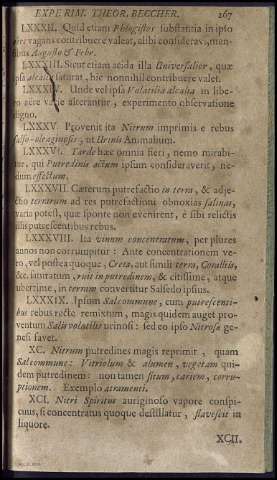 EXPERIM. THEOR. BECCHER. 267
LXXXII. Quid etiam Phlogistos substantia in ipso
aere vagans contribuere valeat, alibi consideravi, men-
sibus Augusto & Febr.
LXXXIII. Sicut etiam acida illa Universalior, quæ
ipsa alcalia saturat, hic nonnihil contribuere valet.
LXXXIV. Unde vel ipsa Volatilia alcalia in libe-
ro aere varie alterantur, experimento observatione
digno.
LXXXV. Provenit ita Nitrum imprimis e rebus
falso-oleaginosis, ut Urinis Animalium.
LXXXVI. Tarde hæc omnia fieri, nemo mirabi-
tur, qui Putredinis actum ipsum consideraverit, ne-
dum effectum.
LXXXVII. Cæterum putrefactio in terra, & adje-
ctio terrarum ad res putrefactioni obnoxias salinas,
varia potest, quæ sponte non evenirent, e sibi relictis
illis putrescentibus rebus.
LXXXVIII. Ita vinum concentratum, per plures
annos non corrumpitur: Ante concentrationem ve-
ro, vel postea quoque, Creta, aut simili terra, Coralliis,
&c. saturatum, ruit in putredinem, & citissime, atque
ubertime, in terram convertitur Salsedo ipsius.
LXXXIX. Ipsum Sal commune, cum putrescenti-
bus rebus recte remixtum, magis quidem auget pro-
ventum Salis volatilis urinosi: sed eo ipso Nitrosæ ge-
nesi favet.
XC. Nitrum putredines magis reprimit, quam
Sal commune: Vitriolum & alumen, vegetam qui-
dem putredinem: non tamen situm, cariem, corru-
ptionem. Exemplo atramenti.
XCI. Nitri Spiritus auriginoso vapore conspi-
cuus, si concentratus quoque destillatur, flavescit in
liquore.
XCII.